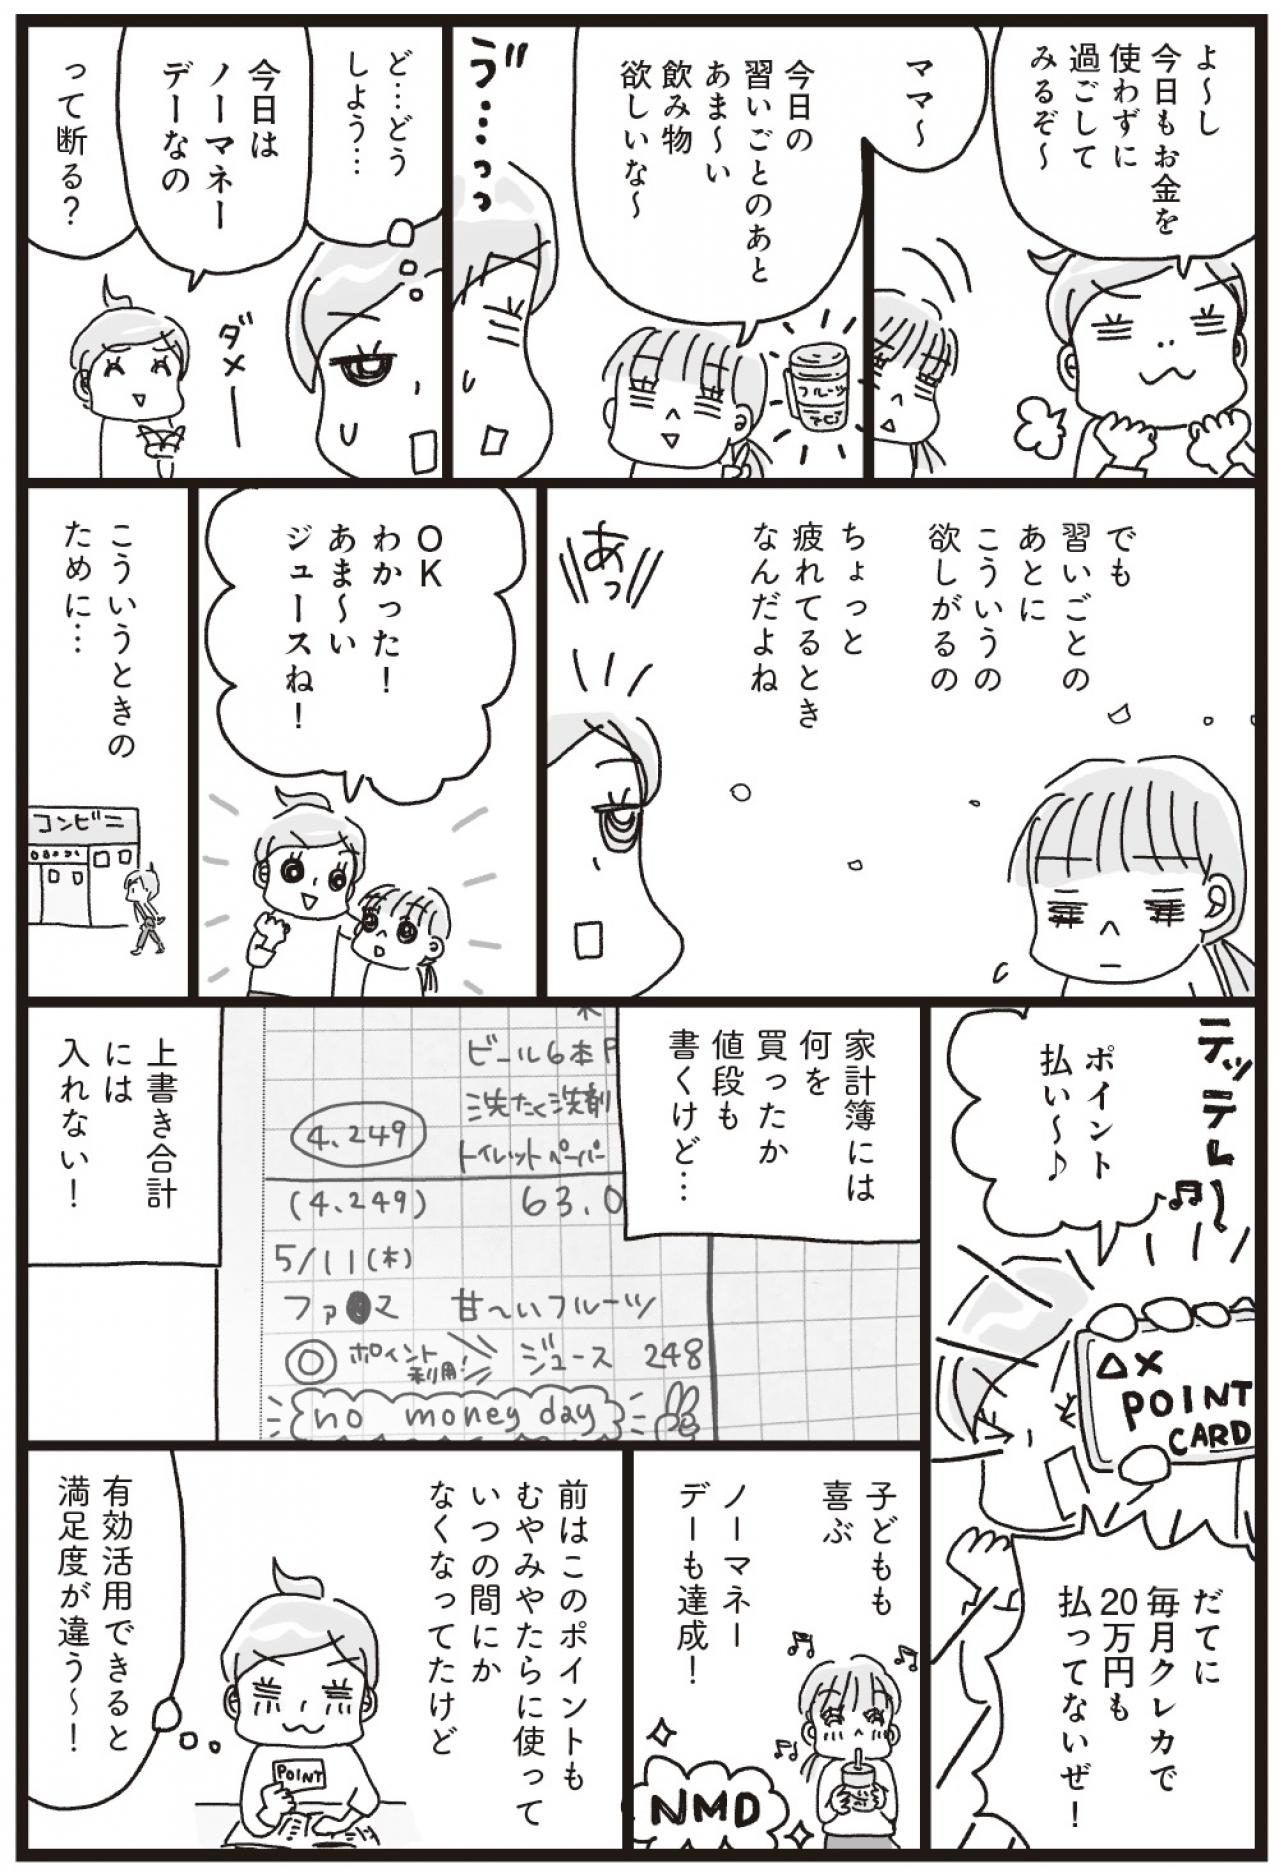 よ〜し
今日もお金を
使わずに
過ごして
みるぞ〜
ママ〜
今日の
習いごとのあと
あま〜い
飲み物
欲しいな〜
フルーツ
ヴ…っっ
ど…どう
しよう…
今日は
ノーマネー
デーなの
って断る？
ダメー
でも
習いごとの
あとに
こういうの
欲しがるの
ちょっと
疲れてるとき
なんだよね
あっ
OK
わかった！
あま〜い
ジュースね！
こういうときの
ために…
コンビニ
テッテレ〜
ポイント
払い〜♪
△×
POINT
CARD
だてに
毎月クレカで
20万円も
払ってないぜ！
家計簿には
何を
買ったか
値段も
書くけど…
ビール6本P
洗たく洗剤
4,249
トイレットペーパー
(4,249) 63.0
5/11(木)
ファ●マ 甘〜いフルーツ
◎ ポイント利用！ ジュース 248
no money day
上書き合計
には
入れない！
子どもも
喜ぶ
ノーマネー
デーも達成！
NMD
前はこのポイントも
むやみやたらに使って
いつの間にか
なくなってたけど
POINT
有効活用できると
満足度が違う〜！